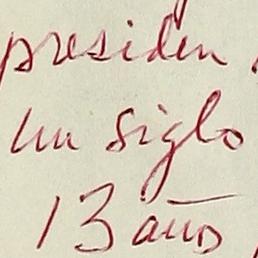 presiden
un siglo
13 años